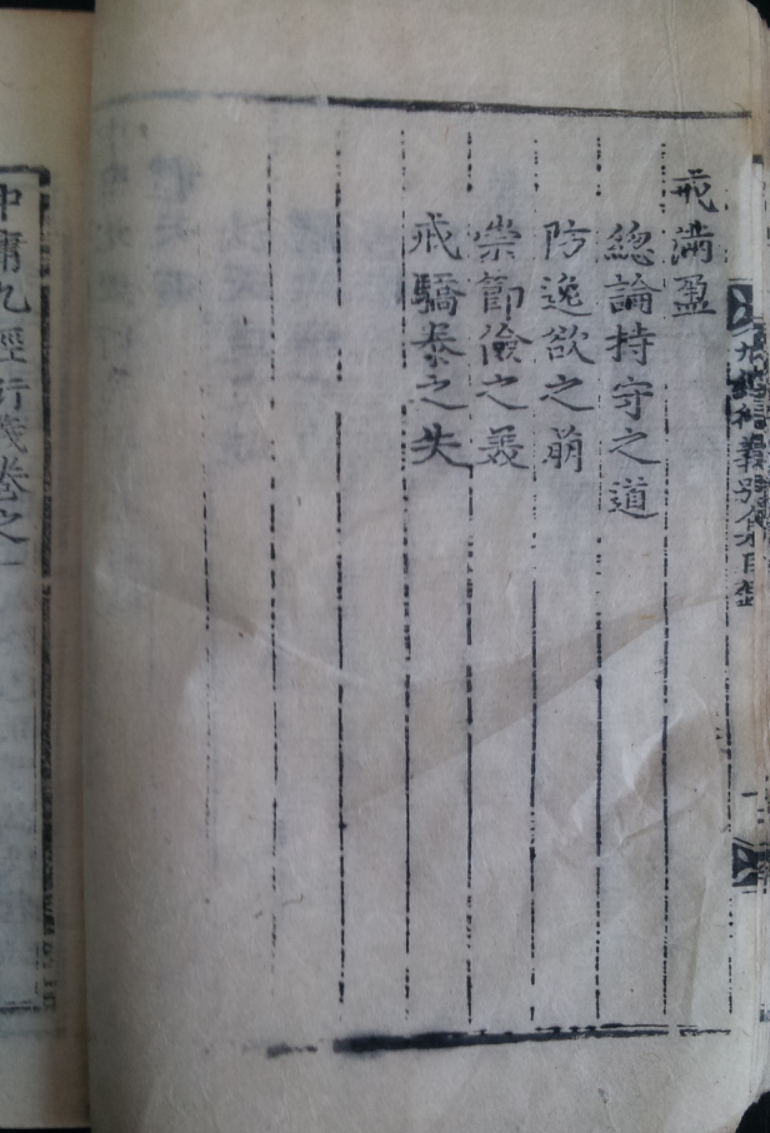 戒滿盈
總論持守之道
防逸欲之萠
崇節儉之羙
戒驕泰之失
九經衍義別集目
中庸九經衍義卷之一